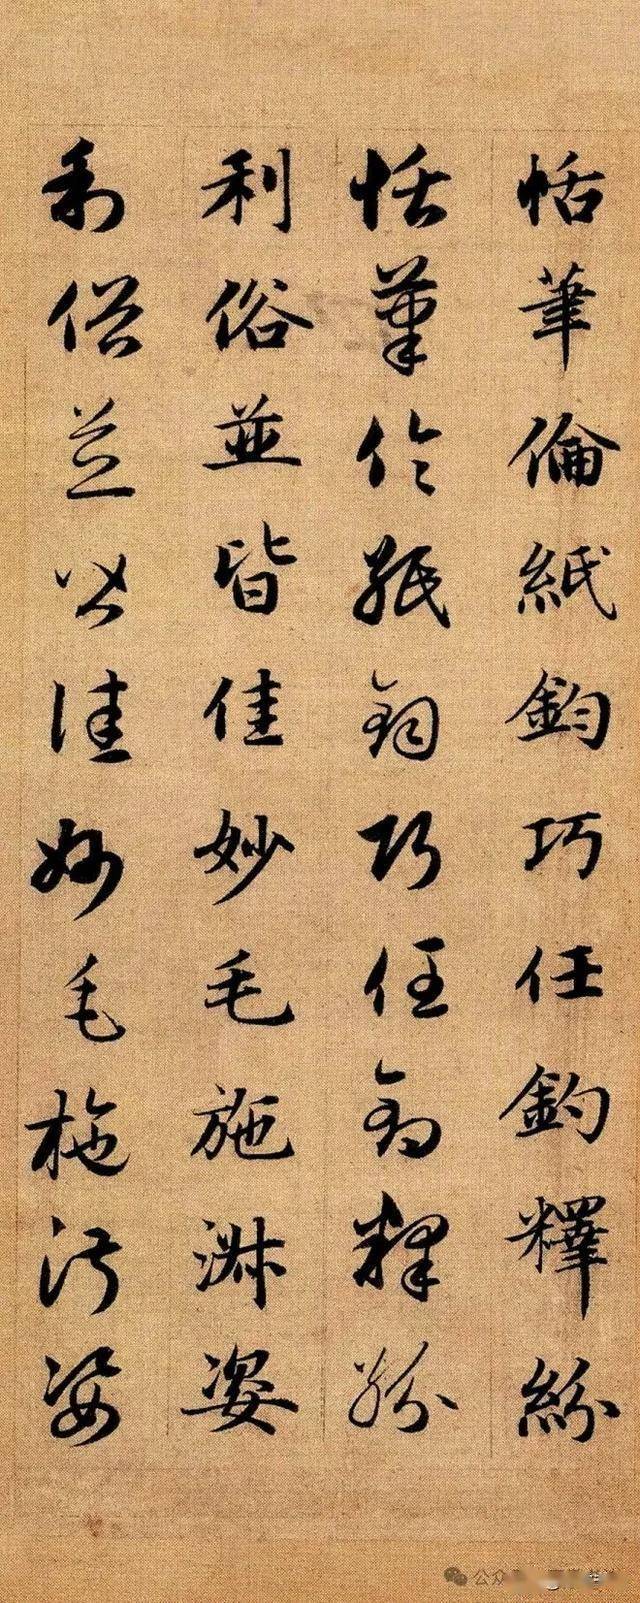 恬筆倫紙鈞巧任釣釋紛
恬筆倫紙鈞巧任釣釋紛
利俗並皆佳妙毛施淑姿
利俗並皆佳妙毛施淑姿
公众